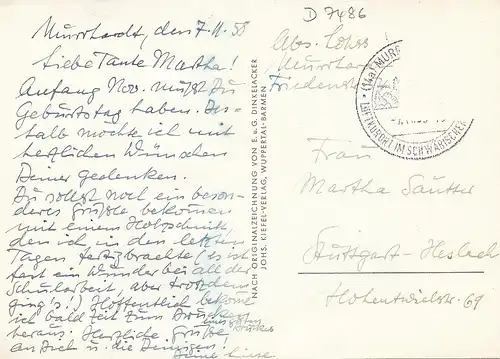 Murrhardt, den 7.11.58
Liebe Tante Martha!
Anfang Nov. mußt Du
Geburtstag haben. Des-
halb möchte ich mit
herzlichen Wünschen
Deiner gedenken.
Du sollst noch ein beson-
deres Grüßle bekommen
mit einem Holzschnitt,
den ich in den letzten
Tagen fertigbrachte (es ist
fast ein Wunder bei all der
Schularbeit, aber trotzdem
ging's!) Hoffentlich bekomme
ich bald Zeit zum Drucken
heraus. Herzliche Grüße
an Dich u. die Deinigen!
NACH ORIGINALZEICHNUNG VON E. u. G. DINKELACKER
JOHS. KIEFEL-VERLAG, WUPPERTAL-BARMEN
D 7486
Abs. Lohss
Murrhardt
Friedenstr.
(14a) MURR
LUFTKURORT IM SCHWÄBISCHEN
Frau
Martha Sautter
Stuttgart-Heslach
Hohentwielstr. 69